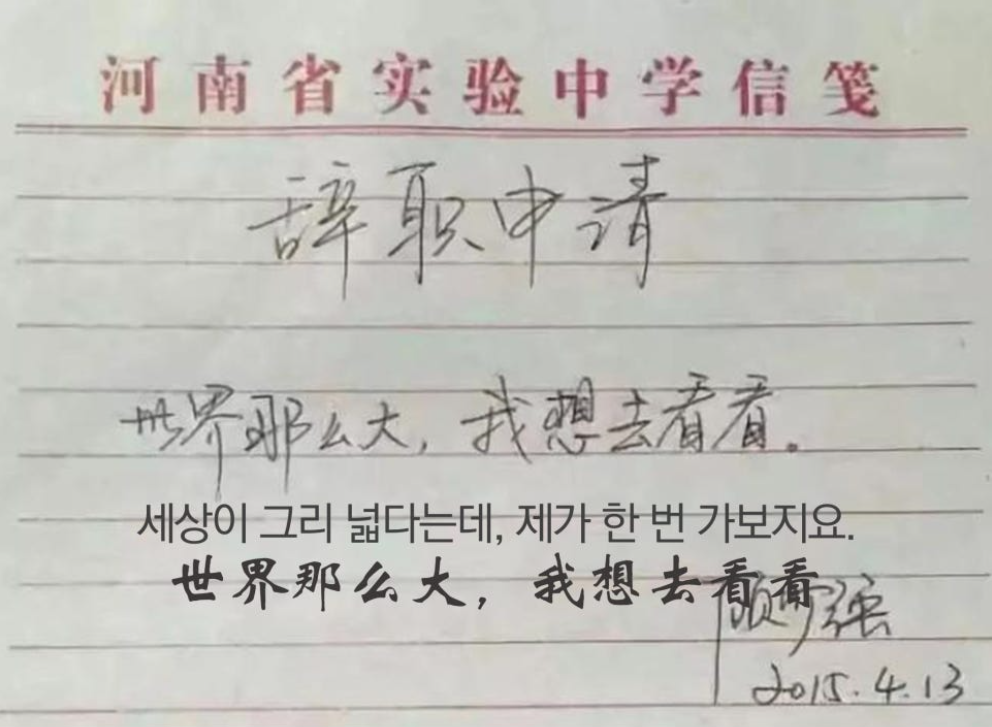 河南省实验中学信笺
辞职申请
世界那么大，我想去看看。
세상이 그리 넓다는데, 제가 한 번 가보지요.
世界那么大，我想去看看
顾少强
2015.4.13